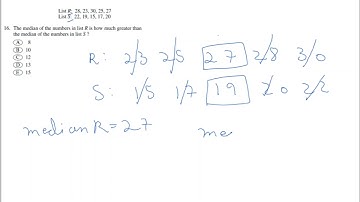 List R: 28, 23, 30, 25, 27
List S: 22, 19, 15, 17, 20
16. The median of the numbers in list R is how much greater than
the median of the numbers in list S ?
A 8
B 10
C 12
D 13
E 15
R: 23 25 27 28 30
S: 15 17 19 20 22
median R = 27 me